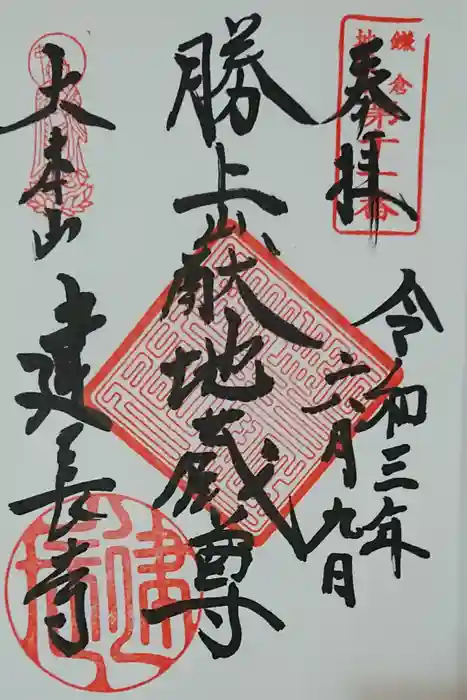 鎌倉
地蔵
第十一番
奉拝
令和三年
六月九日
勝上巘地蔵尊
大本山
建長寺